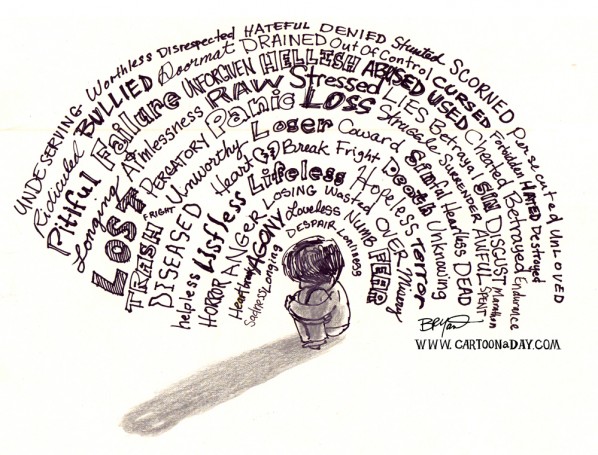 UNDESERVING Worthless Disrespected HATEFUL DENIED Stunted SCORNED Persecuted UNLOVED
Ridiculed BULLIED Doormat DRAINED Out Of Control CURSED Forbidden HATED Destroyed
Pitiful Failure UNFORGIVEN HELLISH ABUSED USED Cheated Betrayed Endurance
Longing Aimlessness RAW Stressed LIES Betrayal SIN DISGUST Marathon
LOST PERGATORY Panic LOSS Struggle SURRENDER AWFUL SPENT
TRASH FRIGHT Unworthy Loser Coward Sinful Heartless DEAD
DISEASED Heart Break Fright Death Unknowing
helpless Listless Lifeless Hopeless Terror
HORROR ANGER LOSING Wasted OVER Misery
AGONY Loveless NUMB FEAR
Sadness Longing DESPAIR Lonliness
WWW.CARTOONaDAY.COM